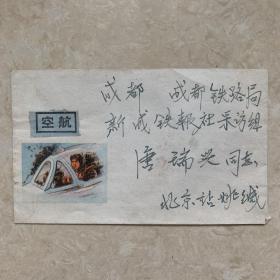 成都 成都铁路局
新成铁报社采访组
空航
唐瑞兴同志
北京站姚缄